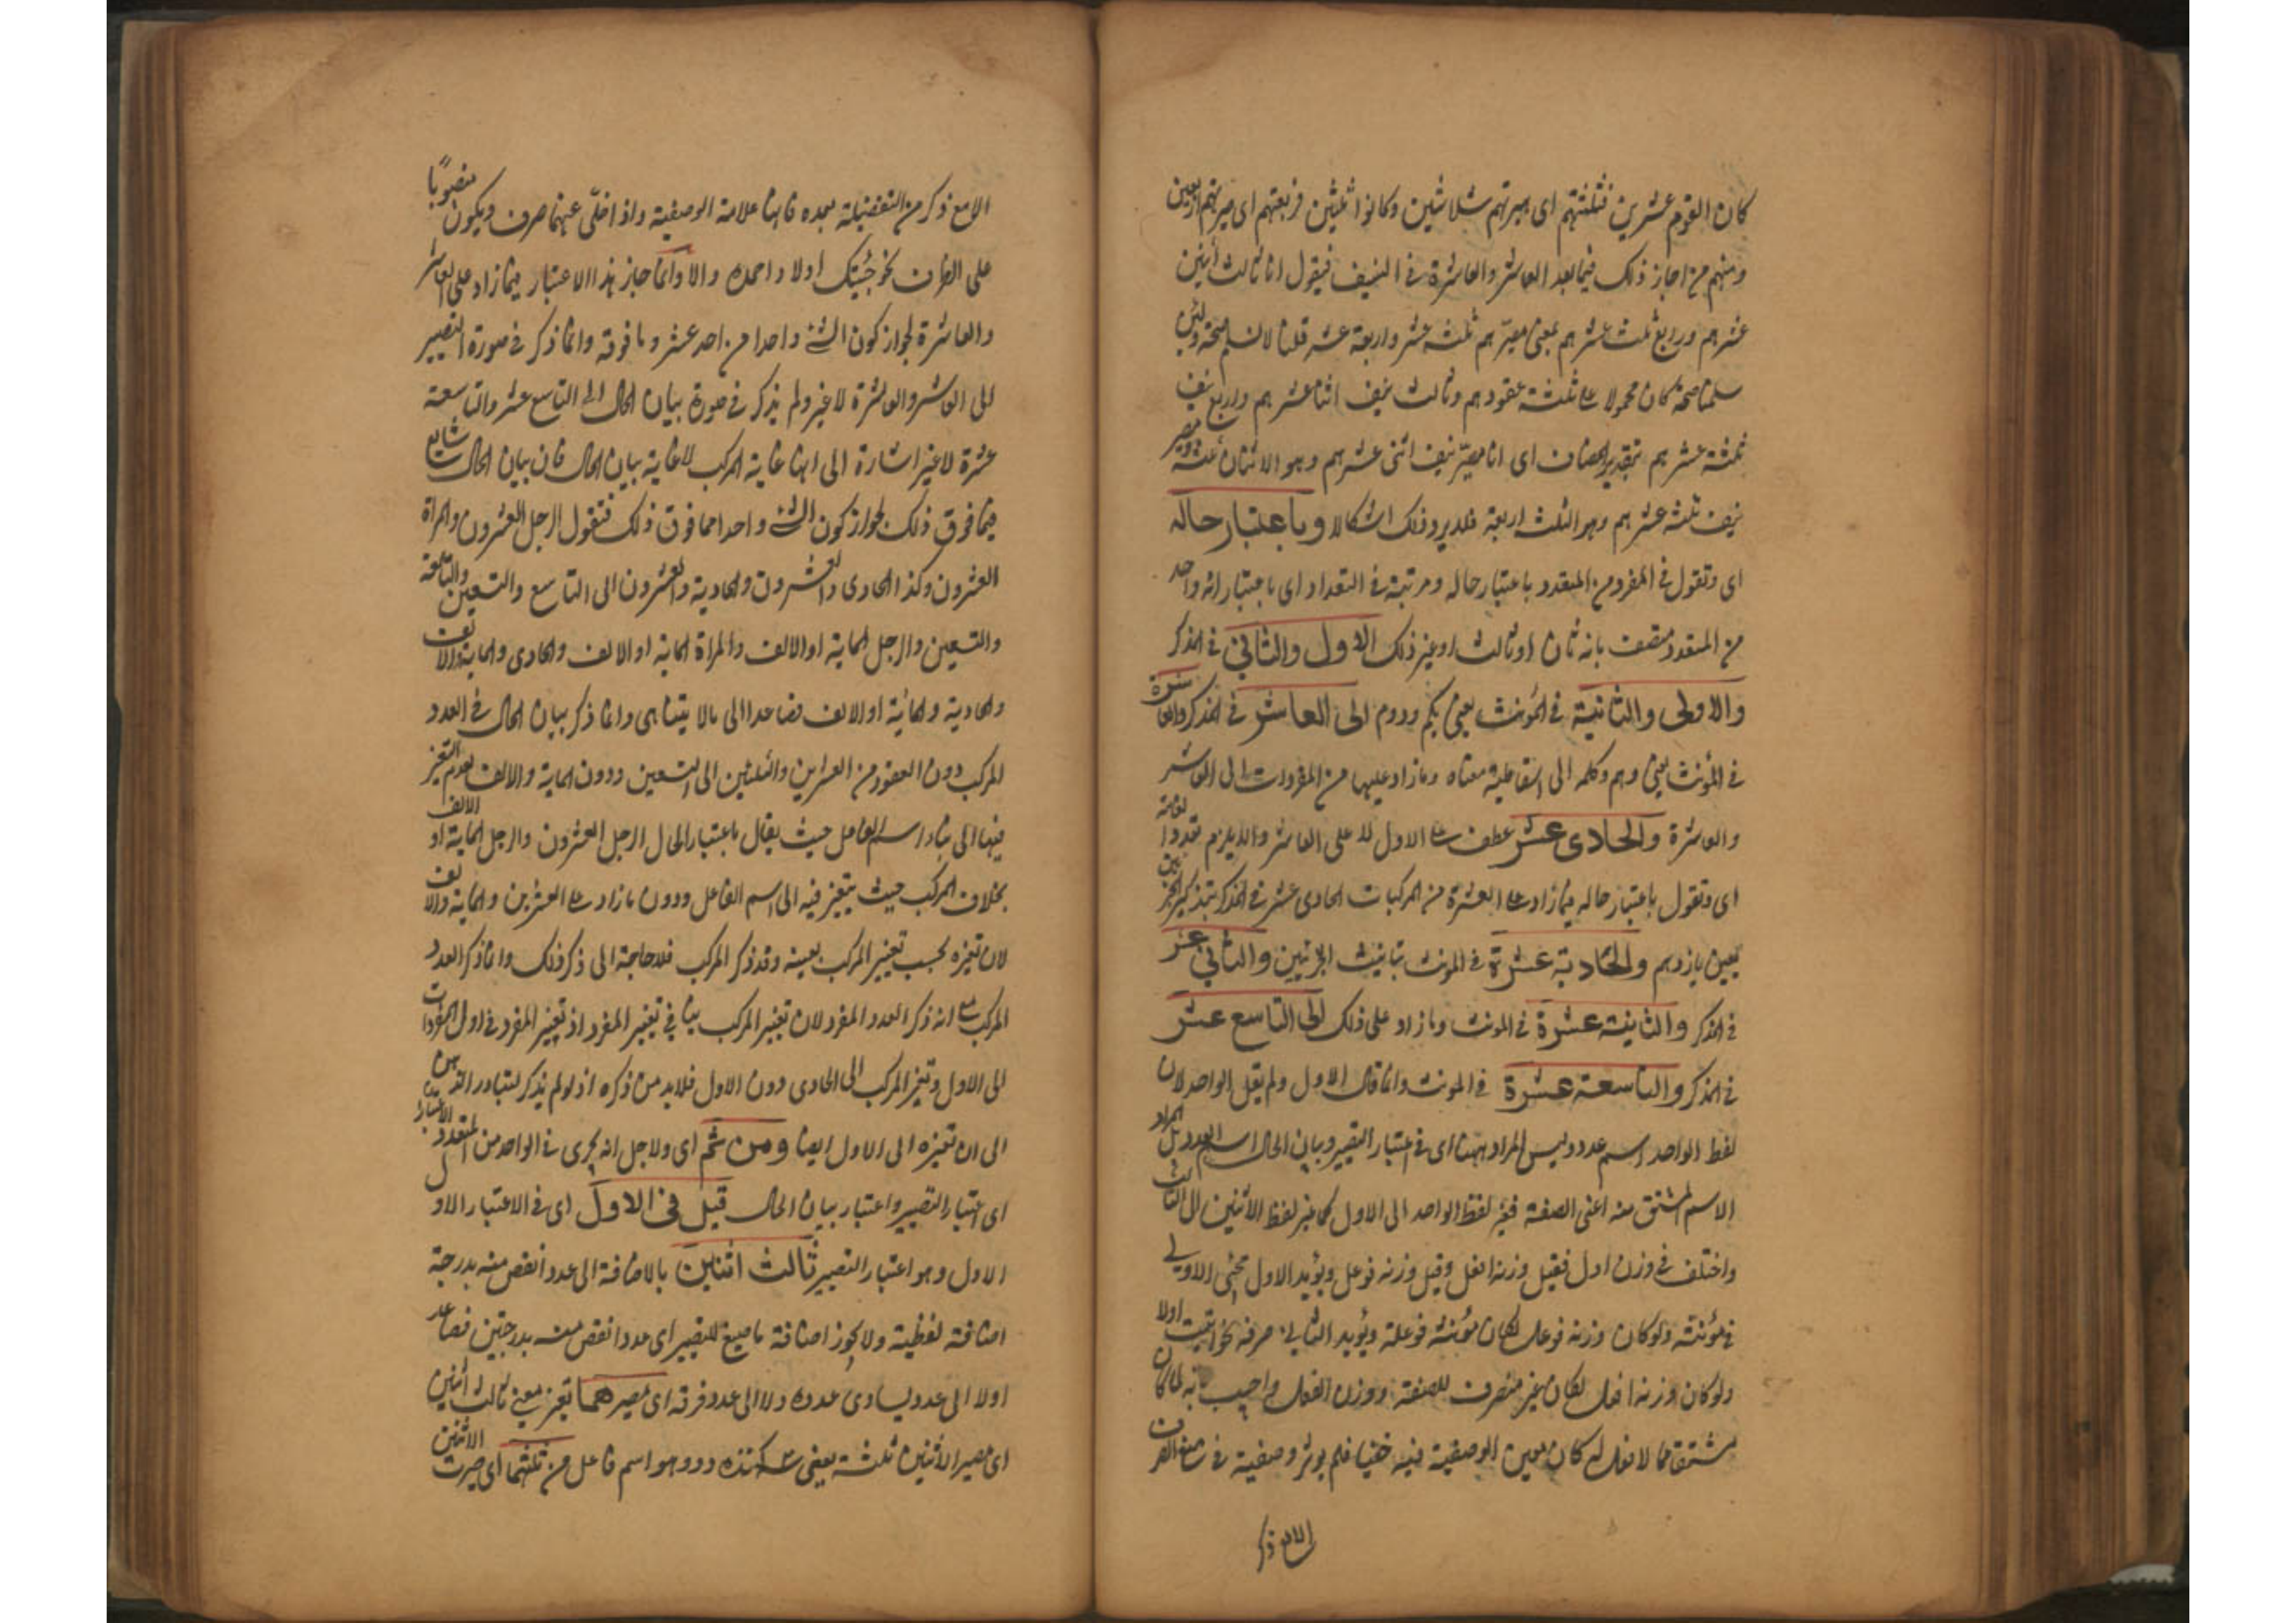 كان القوم عشرين فثلثتهم اى صيرتهم ثلاثين وكانوا ثلثين فربعتهم اى صيرتهم اربعين
ومنهم من اجاز ذلك فيما بعد العاشر والعاشرة فى النيف فيقول انا ثالث اثنين
عشرهم ورابع ثلث عشرهم بمعنى مصيرهم ثلثه عشر واربعة عشر قلنا لانسلم صحته ولئن
سلمنا صحته كان محمولا على ثلثة عقودهم وثالث نيف اثنا عشرهم ورابع نيف
ثلثة عشرهم بتقدير المضاف اى انا مصير نيف اثنى عشرهم وهو الاثنان ثلثه ومصير
نيف ثلثه عشرهم وهو الثلث اربعة فلا يرد ذلك اشكالا وباعتبار حاله
اى وتقول فى المفرد من المتعدد باعتبار حاله ومرتبته فى التعداد اى باعتبار انه واحد
من المتعدد متصف بانه ثان او ثالث او غير ذلك الاول والثانى فى المذكر
والاولى والثانية فى المؤنث يعنى يكم ودوم الى العاشر فى المذكر والعاشرة
فى المؤنث يعنى دهم وكلمه الى اسقاطيه معناه وما زاد عليها من المفردات الى العاشر
والعاشرة والحادى عشر عطف على الاول لا على العاشر والا يلزم تعدد الغاية
اى وتقول باعتبار حاله فيما زاد على العشرة من المركبات الحادى عشر فى المذكر بتذكير الجزئين
يعنى يازدهم والحادية عشرة فى المونث بتانيث الجزئين والثانى عشر
فى المذكر والثانية عشرة فى المونث وما زاد على ذلك الى التاسع عشر
فى المذكر والتاسعة عشرة فى المونث وانما قال الاول ولم يقل الواحد لان
لفظ الواحد اسم عدد وليس المراد ههنا اى فى اعتبار التصيير وبيان الحال اسم العدد بل المراد
الاسم المشتق منه اعنى الصفة فغير لفظ الواحد الى الاول كما غير لفظ الاثنين الى الثالث
واختلف فى وزن اول فقيل وزنه افعل وقيل وزنه فوعل ويؤيد الاول مجئ الاولى
فى مؤنثه ولو كان وزنه فوعل لكان مؤنثه فوعلة ويؤيد الثانى صرفه نحو اتيت اولا
ولو كان وزنه افعل لكان غير منصرف للصفة ووزن الفعل واجيب بانه لما كان
مشتقا مما لا فعل له كان معنى الوصفية فيه خفيا فلم يوثر وصفية فى منع الصرف
الا مع ذكر
الا مع ذكر من التفضيلة بعده فانها علامة الوصفية واذا خلى عنهما صرف ويكون منصوبا
على الظرف نحو جئتك اولا واحمده والا وانما جاز هذا الاعتبار فيما زاد على العاشر
والعاشرة لجواز كون الشئ واحدا من احد عشر وما فوقه وانما ذكر فى صورة التصيير
الى العاشر والعاشرة لا غير ولم يذكر فى صورة بيان الحال الى التاسع عشر والتاسعة
عشرة لا غير اشارة الى انها غاية المركب لا غاية بيان الحال فان بيان الحال شايع
فيما فوق ذلك لجواز كون الشئ واحدا مما فوق ذلك فتقول الرجل العشرون والمراة
العشرون وكذا الحادى والعشرون والحادية والعشرون الى التاسع والتسعين والتاسعة
والتسعين والرجل المائة او الالف والمراة المائة او الالف والحادى والمائة والالف
والحادية والمائة او الالف فصاعدا الى مالا يتناهى وانما ذكر بيان الحال فى العدد
المركب دون العقود من العشرين والثلثين الى التسعين ودون المائة والالف لعدم التغير
فيها الى بناء اسم الفاعل حيث يقال باعتبار الحال الرجل العشرون والرجل المائة او الالف
بخلاف المركب حيث يتغير فيه الى اسم الفاعل ودون ما زاد على العشرين والمائة والالف
لان تغيره بحسب تغيير المركب بعينه وقد ذكر المركب فلا حاجة الى ذكر ذلك وانما ذكر العدد
المركب مع انه ذكر العدد المفرد لان تغيير المركب ينافى تغيير المفرد اذ تغيير المفرد فى اول المفردات
الى الاول وتغير المركب الى الحادى دون الاول فلا بد من ذكره اذ لو لم يذكر لتبادر الذهن
الى ان تغيره الى الاول ايضا ومن ثم اى ولاجل انه يجرى فى الواحد من المتعدد الاعتباران
اى اعتبار التصيير واعتبار بيان الحال قيل فى الاول اى فى الاعتبار الاول
الاول وهو اعتبار التصيير ثالث اثنين بالاضافة الى عدد انقص منه بدرجة
اضافة لفظية ولا يجوز اضافة ما صيغ للتصيير اى عدد انقص منه بدرجتين فصاعدا
اولا الى عدد يساوى عدده ولا الى عدد فوقه اى مصيرهما تغير معنى ثالث اثنين
اى مصير الاثنين ثلثه يعنى سه كننده دو وهو اسم فاعل من ثلثتهما اى صيرت الاثنين